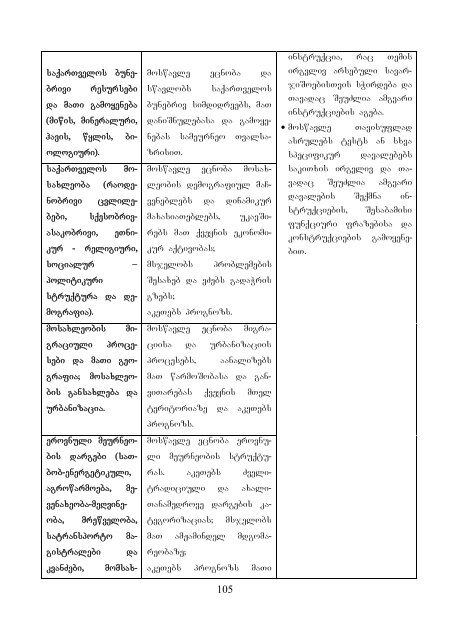 საქართველოს ბუნე-
ბრივი რესურსები
და მათი გამოყენება
(მიწის, მინერალური,
ჰავის, წყლის, ბი-
ოლოგიური).
საქართველოს მო-
სახლეობა (რაოდე-
ნობრივი ცვლილე-
ბები, სქესობრივ-
ასაკობრივი, ეთნი-
კურ - რელიგიური,
სოციალურ –
პოლიტიკური
სტრუქტურა და დე-
მოგრაფია).
მოსახლეობის მი-
გრაციული პროცე-
სები და მათი გეო-
გრაფია; მოსახლეო-
ბის განსახლება და
ურბანიზაცია.
ეროვნული მეურნეო-
ბის დარგები (სათ-
ბობ-ენერგეტიკული,
აგროწარმოება, მე-
ვენახეობა-მეღვინე-
ობა, მრეწველობა,
სატრანსპორტო მა-
გისტრალები და
კვანძები, მომსახ-
მოსწავლე ეცნობა და
სწავლობს საქართველოს
ბუნებრივ სიმდიდრეებს, მათ
დანიშნულებასა და გამოყე-
ნებას სამეურნეო თვალსა-
ზრისით.
მოსწავლე ეცნობა მოსახ-
ლეობის დემოგრაფიულ მაჩ-
ვენებლებს და დინამიკურ
მახასიათებლებს, უკავში-
რებს მათ ქვეყნის ეკონომი-
კურ აქტივობას;
მსჯელობს პრობლემების
შესახებ და ეძებს გადაჭრის
გზებს;
აკეთებს პროგნოზს.
მოსწავლე ეცნობა მიგრა-
ციისა და ურბანიზაციის
პროცესებს, აანალიზებს
მათ წარმოშობასა და გან-
ვითარებას ქვეყნის მთელ
ტერიტორიაზე და აკეთებს
პროგნოზს.
მოსწავლე ეცნობა ეროვნუ-
ლი მეურნეობის სტრუქტუ-
რას. აკეთებს ძველი-
ტრადიციული და ახალი-
თანამედროვე დარგების კა-
ტეგორიზაციას; მსჯელობს
მათ ამჟამინდელ მდგომა-
რეობაზე;
აკეთებს პროგნოზს მათი
ინსტრუქცია, რაც თემის
ირგვლივ არსებული სავარ-
ჯიშოებისთვის სჭირდება და
თავადაც შეუძლია ამგვარი
ინსტრუქციების აგება.
• მოსწავლე თავისუფლად
ასრულებს ტესტს ან სხვა
სპეციფიკურ დავალებებს
საკითხის ირგვლივ და თა-
ვადაც შეუძლია ამგვარი
დავალების შექმნა ინ-
სტრუქციების, შესაბამისი
ფუნქციური ფრაზებისა და
კონსტრუქციების გამოყენე-
ბით.
105